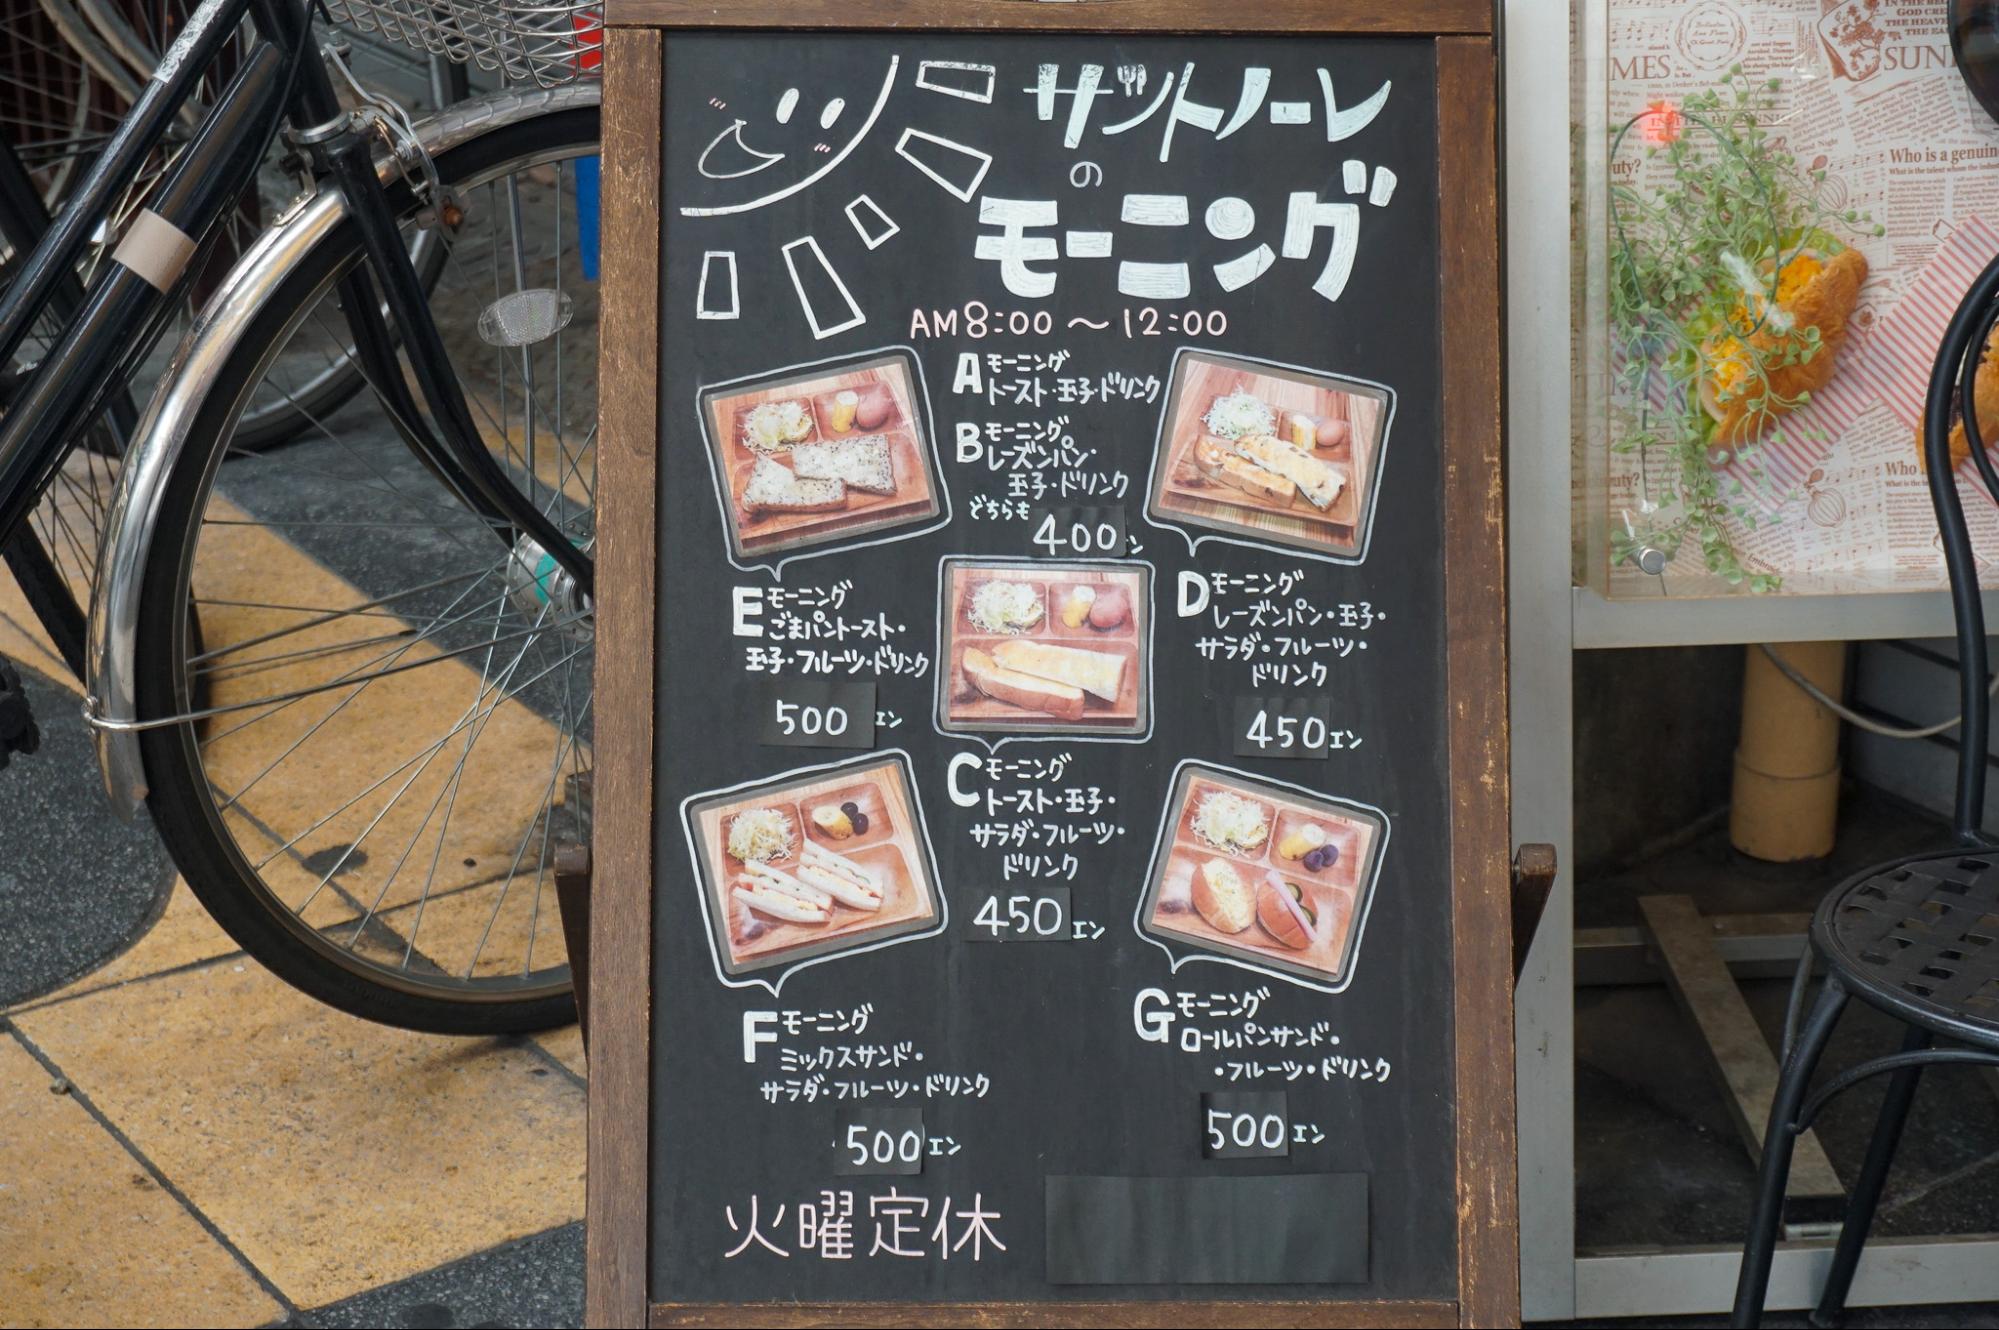 サットノーレ
の
モーニング
AM8:00～12:00
A モーニング
トースト・玉子・ドリンク
B モーニング
レーズンパン・
玉子・ドリンク
どちらも
400ン
E モーニング
ごまパントースト・
玉子・フルーツ・ドリンク
500エン
D モーニング
レーズンパン・玉子・
サラダ・フルーツ・
ドリンク
450エン
C モーニング
トースト・玉子・
サラダ・フルーツ・
ドリンク
450エン
F モーニング
ミックスサンド・
サラダ・フルーツ・ドリンク
500エン
G モーニング
ロールパンサンド・
・フルーツ・ドリンク
500エン
火曜定休
MES
SUN
GOD CRE
THE HEAVE
Good Night
Who is a genuin
What is the talent whom the
uty?
Who
uty?